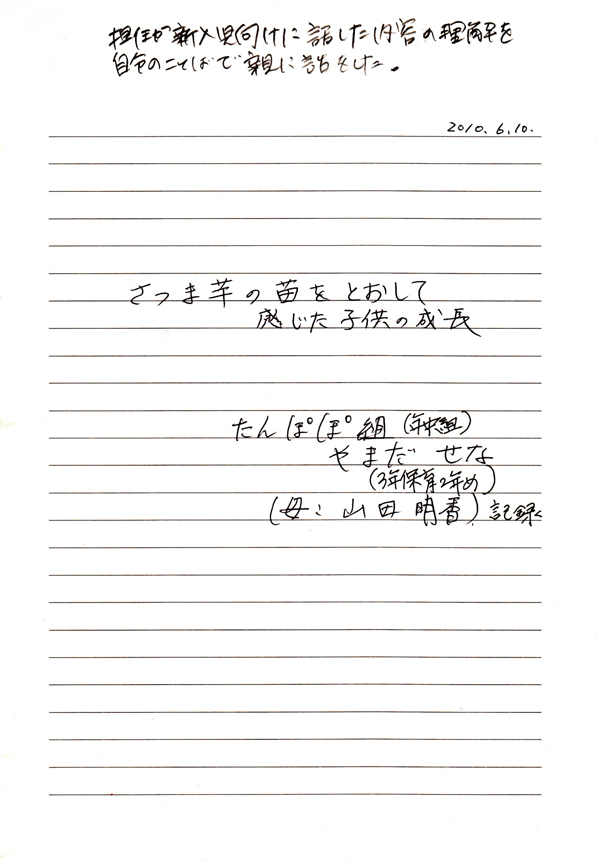 担任が新入児向けに話した内容の理解を
自分のことばで親に話をした。
2010.6.10.
さつま芋の苗をとおして
感じた子供の成長
たんぽぽ組(年中組)
やまだ せな
(3年保育2年め)
(母:山田明香)記録